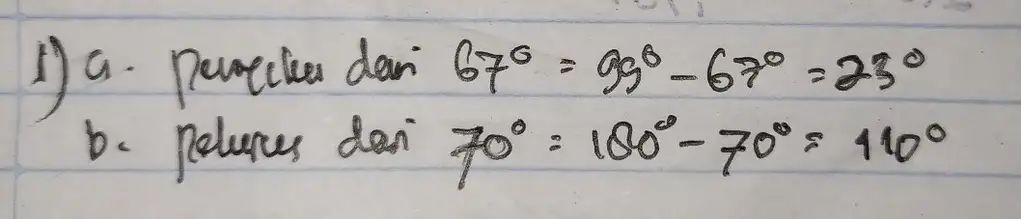 1) a. penyiku dari 67° = 90° - 67° = 23°
b. pelurus dari 70° = 180° - 70° = 110°